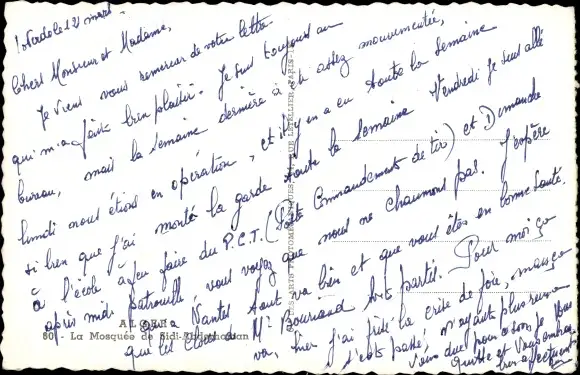 le 12 mars
Chers Monsieur et Madame,
Je viens vous remercier de votre lettre
qui m'a fait bien plaisir. Je suis toujours au
bureau, mais la semaine dernière a été assez mouvementée,
lundi nous étions en opération, et il y en a eu toute la semaine
si bien que j'ai monté la garde toute la semaine. Vendredi je suis allé
à l'école à feu faire du P.C.T. (Poste Commandement de tir) et Dimanche
après midi patrouille, vous voyez que nous ne chaumons pas. J'espère
qu'à Nantes tout va bien et que vous êtes en bonne santé.
que les élèves de Mr Bouriand sont partis. Pour moi ça
va, hier j'ai frisé la crise de foie, mais ça
s'est passé, n'ayant plus rien
vous dire pour ce soir je vous
quitte et vous
bien affectueusement
ALGER
80 - La Mosquée de Sidi-Abderhaman
LES ARTS PHOTOMÉCANIQUES RUE LETELLIER, PARIS